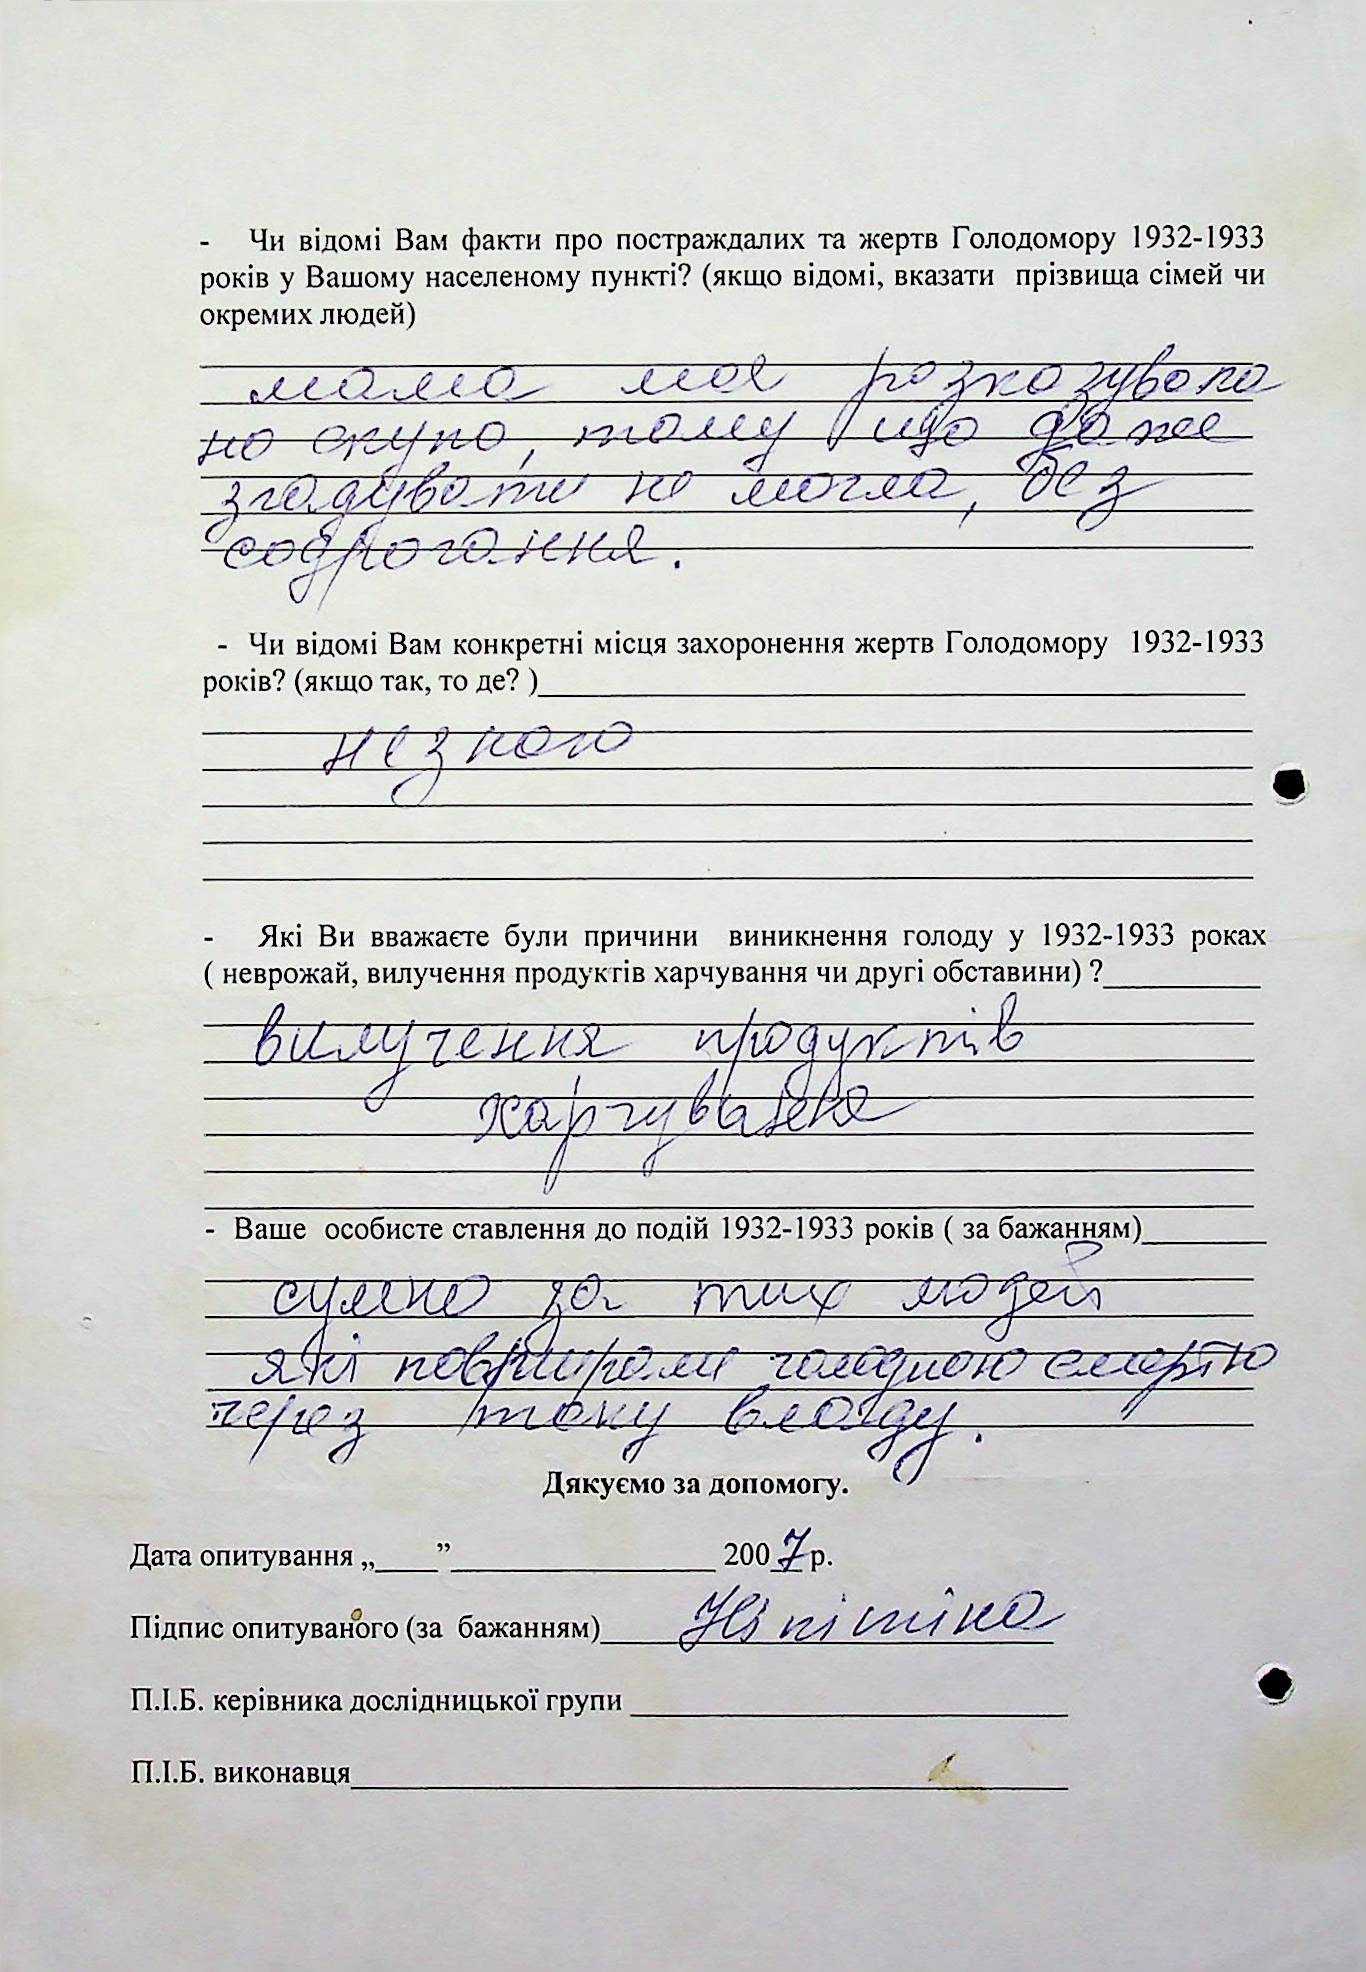 - Чи відомі Вам факти про постраждалих та жертв Голодомору 1932-1933
років у Вашому населеному пункті? (якщо відомі, вказати прізвища сімей чи
окремих людей)
мама моя розказувала
но скупо, тому що даже
згадувати не могла, без
содрогання.
- Чи відомі Вам конкретні місця захоронення жертв Голодомору 1932-1933
років? (якщо так, то де? )
незнаю
- Які Ви вважаєте були причини виникнення голоду у 1932-1933 роках
( неврожай, вилучення продуктів харчування чи другі обставини) ?
вилучення продуктів
харчування
- Ваше особисте ставлення до подій 1932-1933 років ( за бажанням)
сумно за тих людей
які повмирали голодною смертю
через таку владу.
Дякуємо за допомогу.
Дата опитування „____” 2007 р.
Підпис опитуваного (за бажанням) Нікітіна
П.І.Б. керівника дослідницької групи
П.І.Б. виконавця